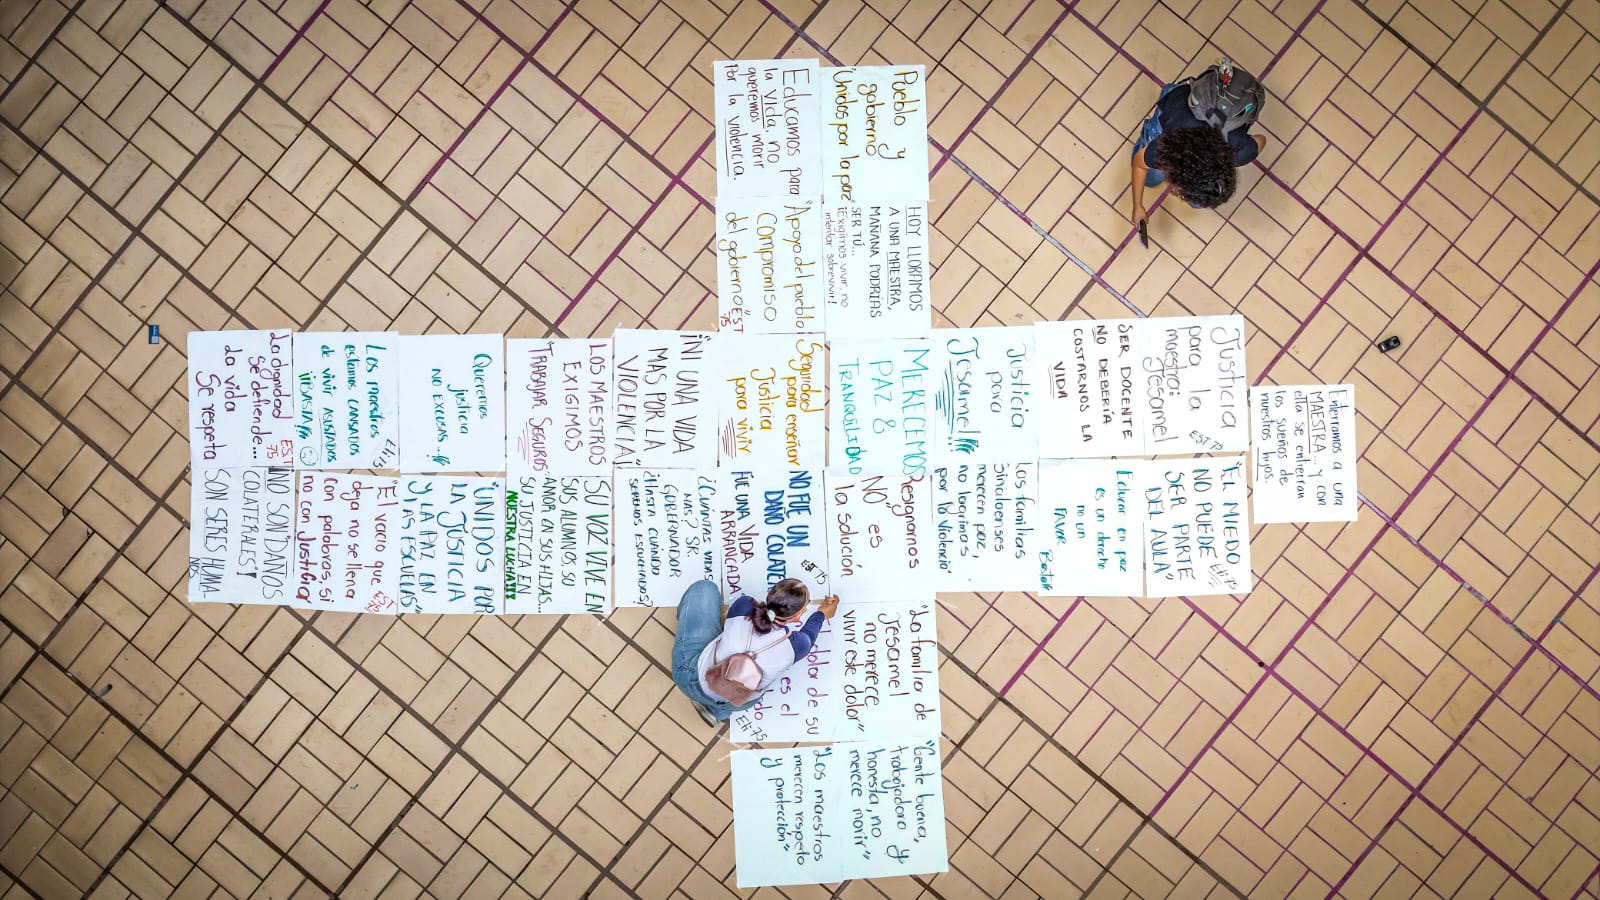 Pueblo y
gobierno
"Unidos por la paz"
Educamos para
la vida, no
queremos morir
Por la violencia.
HOY LLORAMOS
A UNA MAESTRA,
MAÑANA PODRÍAS
SER TÚ...
¡Exigimos vivir, no
intentar sobrevivir!
"Apoyo del pueblo
Compromiso
del gobierno"
EST
75
Enterramos a una
MAESTRA... y con
ella se entierran
los sueños de
nuestros hijos.
Justicia
para la
maestra:
Jesamel
EST 75
SER DOCENTE
NO DEBERÍA
COSTARNOS LA
VIDA
Justicia
para
Jesamel
MERECEMOS
PAZ &
TRANQUILIDAD
Seguridad
para enseñar
Justicia
para vivir
¡NI UNA VIDA
MAS POR LA
VIOLENCIA!
LOS MAESTROS
EXIGIMOS
TRABAJAR SEGUROS
Queremos
justicia
NO EXCUSAS..!!!
Los maestros
estamos CANSADOS
de vivir ASUSTADOS
¡¡BASTA!!
La dignidad
se defiende...
La vida
Se respeta
EST
75
"EL MIEDO
NO PUEDE
SER PARTE
DEL AULA"
Educar en paz
es un derecho
no un
FAVOR
Las familias
sinaloenses
merecen paz,
no lagrimas
por la violencia
Resignarnos
"NO" es
la solución
NO FUE UN
DAÑO
FUE UNA VIDA
ARRANCADA
¿Cuántas vidas
MAS? SR.
GOBERNADOR
¿HASTA CUÁNDO
SEREMOS ESCUCHADOS?
SU VOZ VIVE EN
SUS ALUMNOS, SU
AMOR EN SUS HIJAS...
SU JUSTICIA EN
NUESTRA LUCHA!!!
"UNIDOS POR
LA JUSTICIA
Y LA PAZ EN
LAS ESCUELAS"
"El vacío que
deja no se llena
con palabras, si
no con justicia"
NO SON "DAÑOS
COLATERALES"!
SON SERES HUMA-
NOS
"La familia de
Jesamel
no merece
vivir este dolor"
dolor de su
es el
"Gente buena,
trabajadora y
honesta, no
merece morir"
"Los maestros
merecen respeto
y protección"